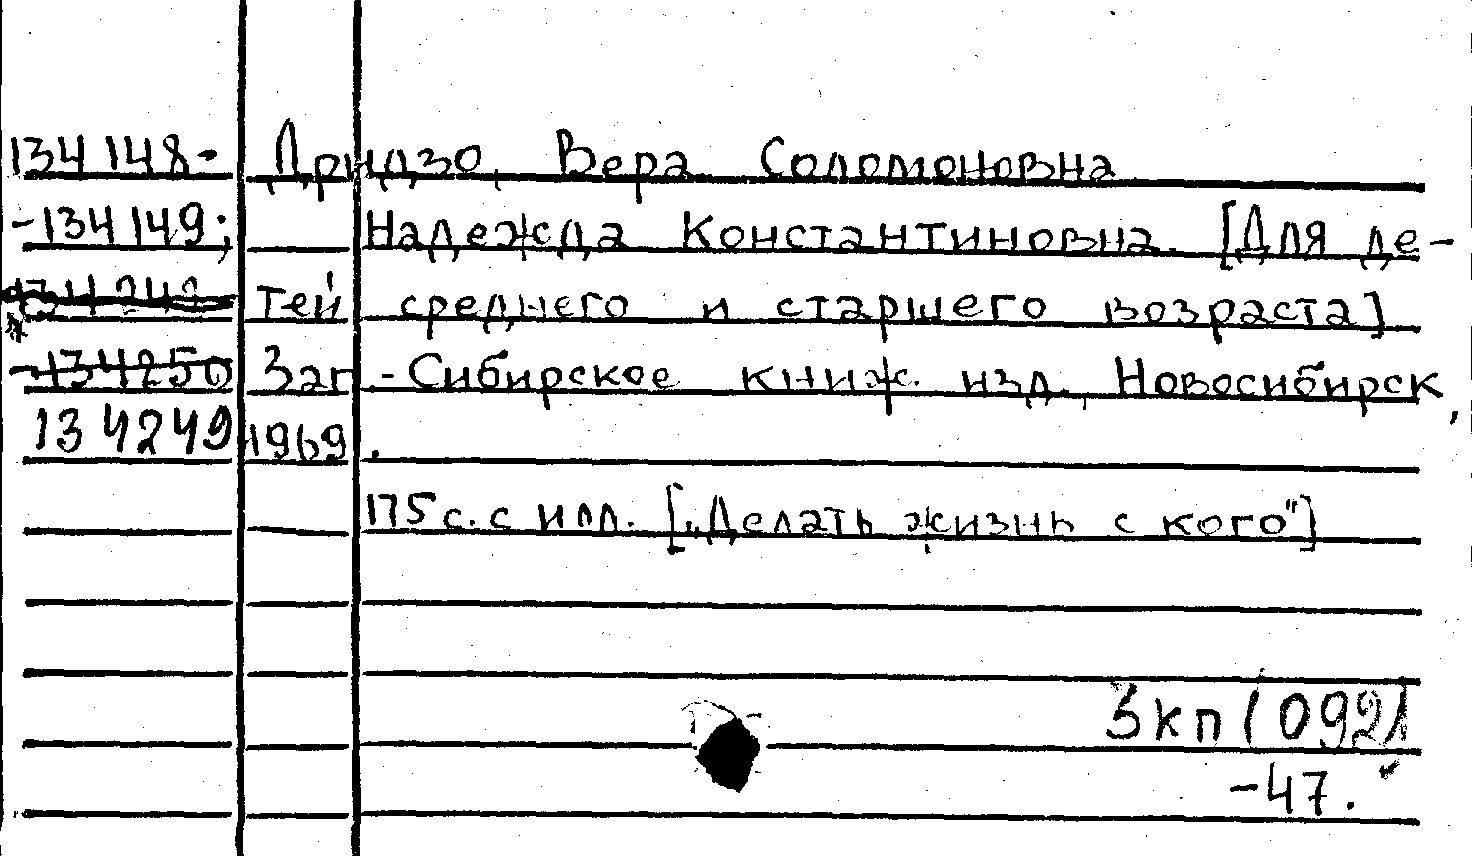 134148- Дридзо, Вера Соломоновна
-134149; Надежда Константиновна. [Для де-
тей среднего и старшего возраста]
-134250 Зап.-Сибирское книж. изд., Новосибирск,
134249 1969.
175 с. с илл. [„Делать жизнь с кого"]
3кп(092)
-47.